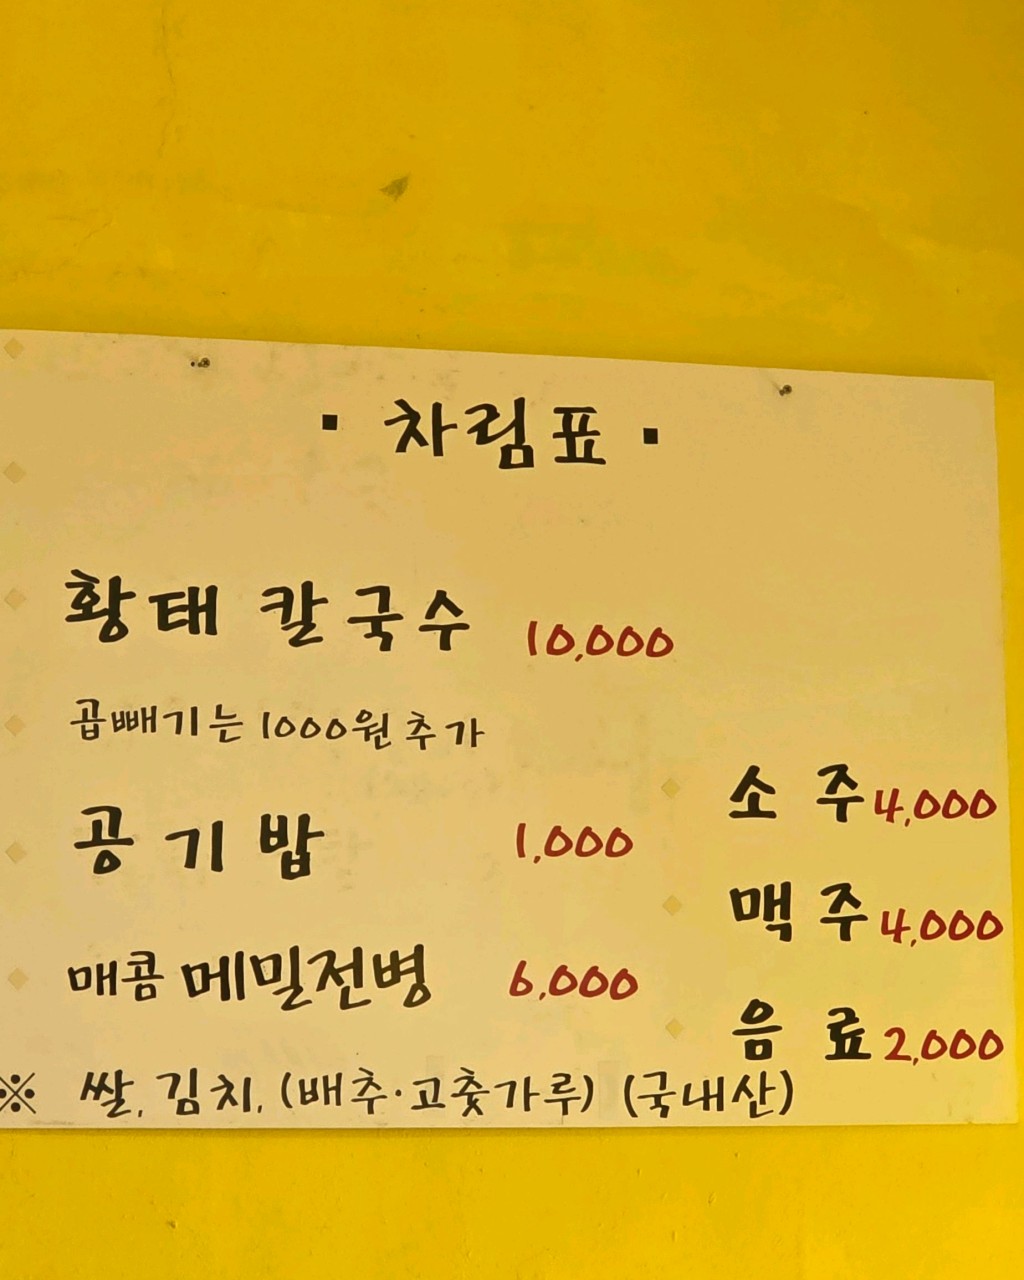 ▪ 차림표 ▪
황태 칼국수 10,000
곱빼기는 1000원 추가
공기밥 1,000
매콤 메밀전병 6,000
소주 4,000
맥주 4,000
음료 2,000
※ 쌀, 김치, (배추·고춧가루) (국내산)